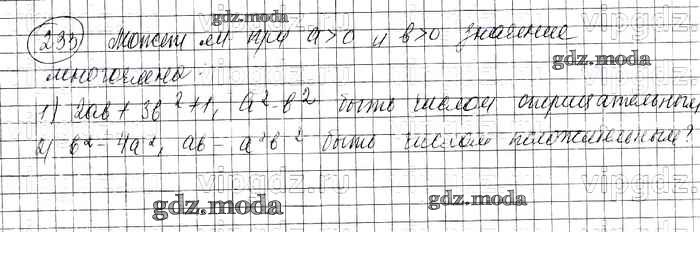 233 Может ли при a>0 и b>0 значение
многочлена:
1) 2ab + 3b² + 1, a² - b² быть числом отрицательным,
2) b² - 4a², ab - a²b² быть числом положительным?
gdz.moda
gdz.moda
gdz.moda
gdz.moda
vipgdz.ru
vipgdz.ru